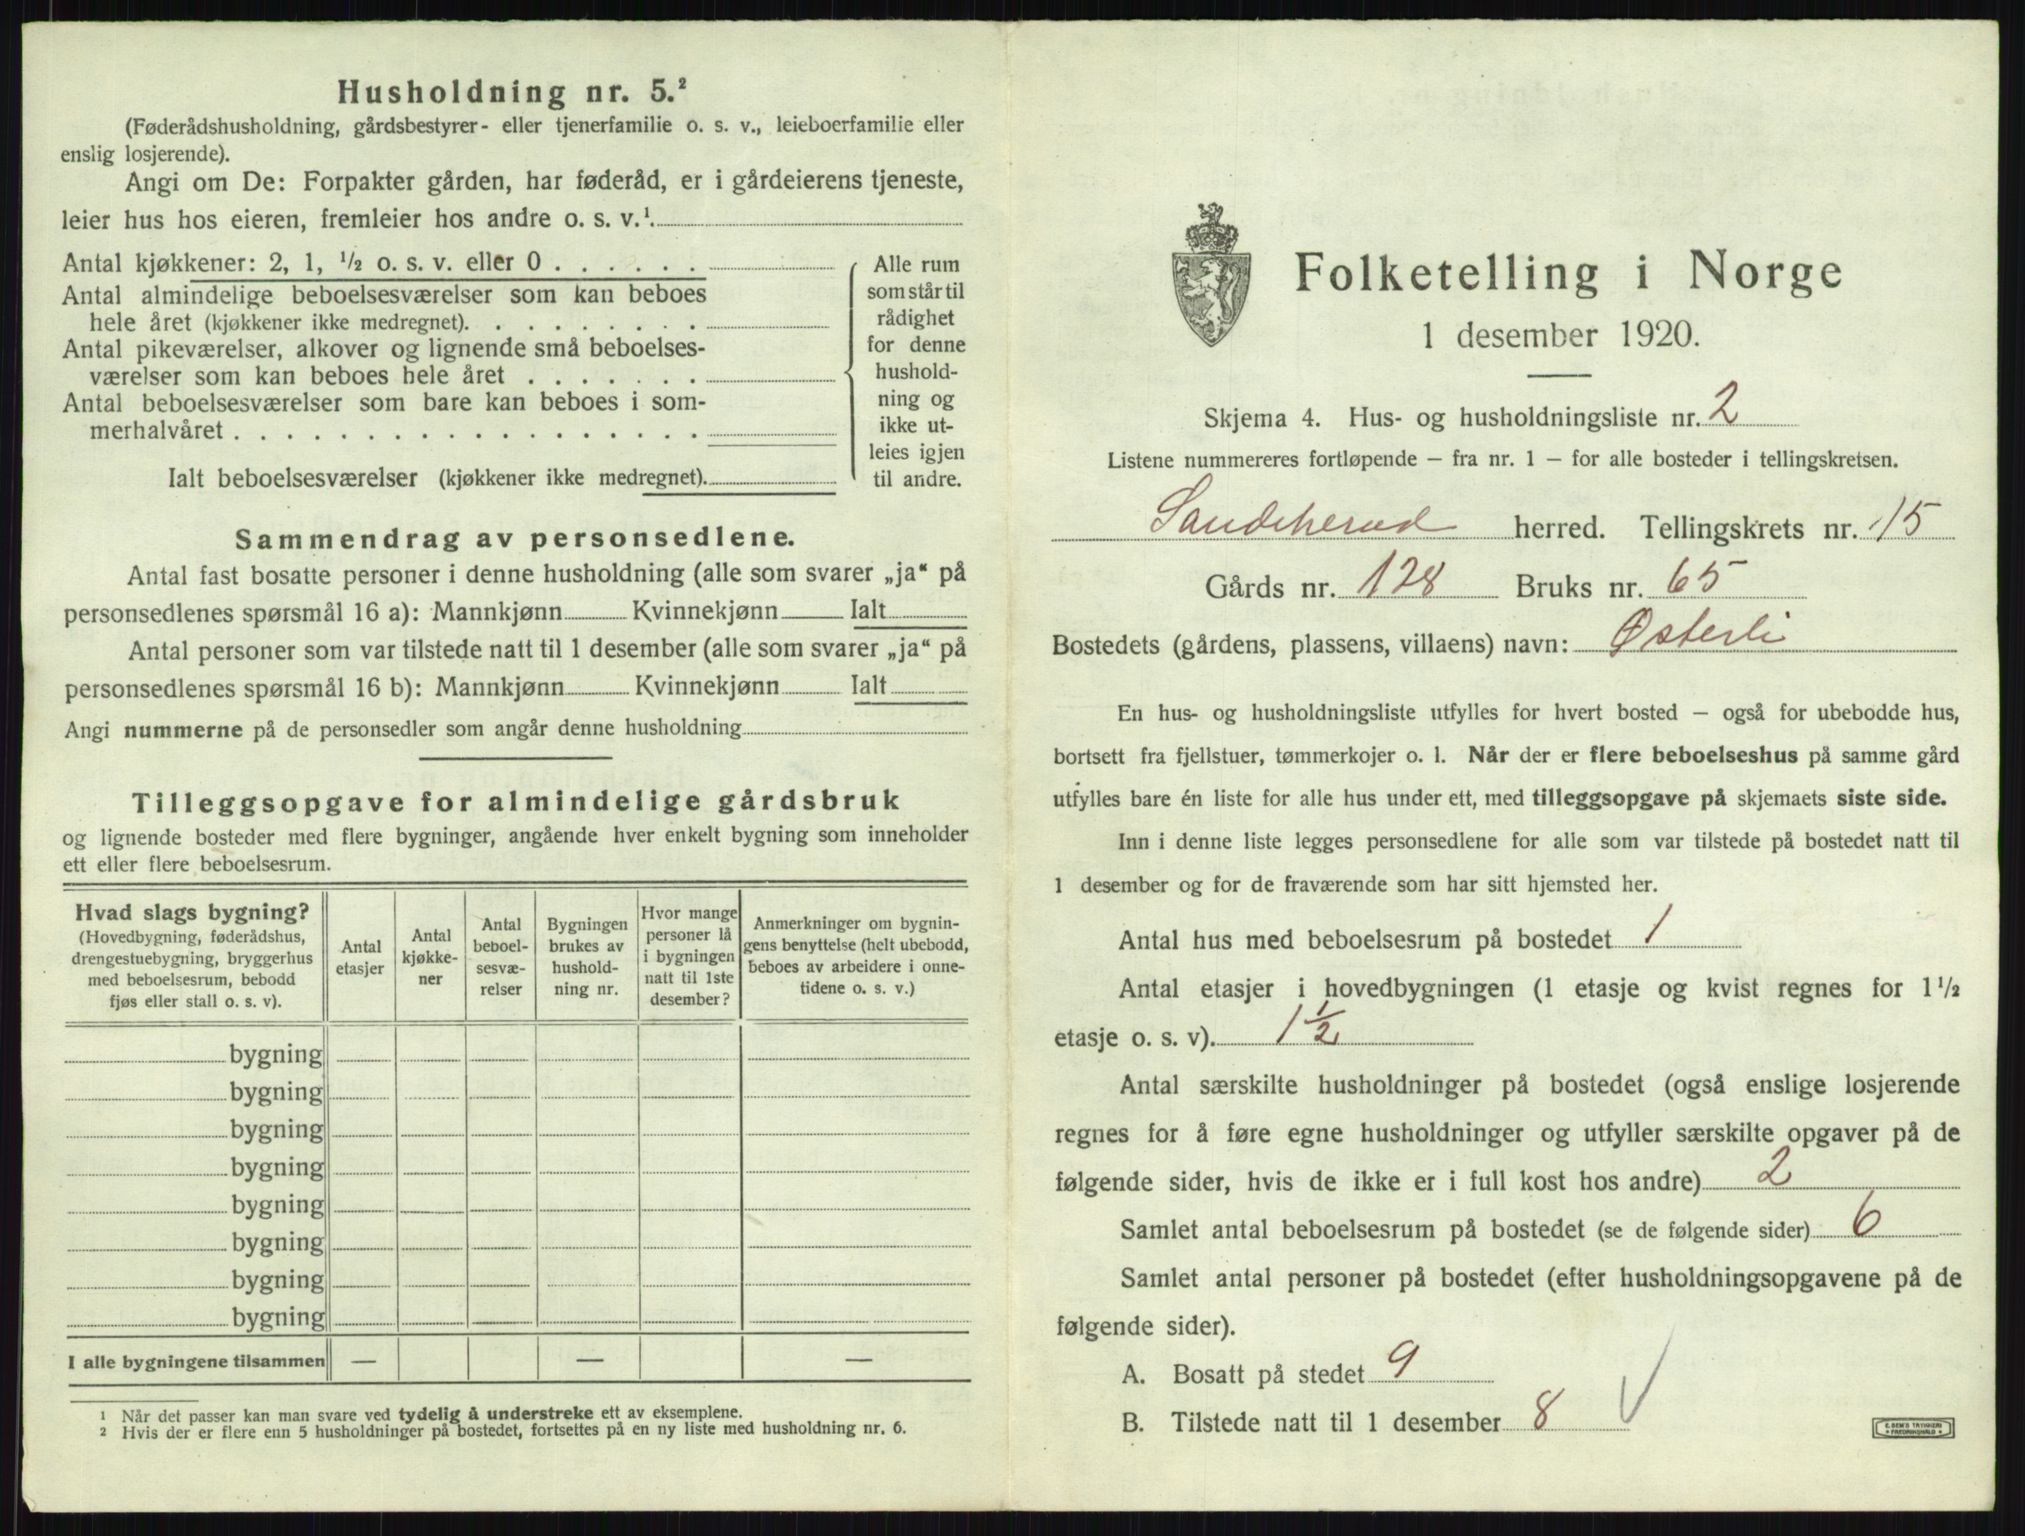 Husholdning nr. 5.²
(Føderådshusholdning, gårdsbestyrer- eller tjenerfamilie o. s. v., leieboerfamilie eller
enslig losjerende).
Angi om De: Forpakter gården, har føderåd, er i gårdeierens tjeneste,
leier hus hos eieren, fremleier hos andre o. s. v.¹
Antal kjøkkener: 2, 1, ½ o. s. v. eller 0 . . . . . .
Antal almindelige beboelsesværelser som kan beboes
hele året (kjøkkener ikke medregnet). . . . . . . . .
Antal pikeværelser, alkover og lignende små beboelses-
værelser som kan beboes hele året . . . . . . .
Antal beboelsesværelser som bare kan beboes i som-
merhalvåret . . . . . . . . . . . . . . . . . .
Ialt beboelsesværelser (kjøkkener ikke medregnet).
Alle rum
som står til
rådighet
for denne
hushold-
ning og
ikke ut-
leies igjen
til andre.
Sammendrag av personsedlene.
Antal fast bosatte personer i denne husholdning (alle som svarer „ja“ på
personsedlenes spørsmål 16 a): Mannkjønn Kvinnekjønn Ialt
Antal personer som var tilstede natt til 1 desember (alle som svarer „ja“ på
personsedlenes spørsmål 16 b): Mannkjønn Kvinnekjønn Ialt
Angi nummerne på de personsedler som angår denne husholdning
Tilleggsopgave for almindelige gårdsbruk
og lignende bosteder med flere bygninger, angående hver enkelt bygning som inneholder
ett eller flere beboelsesrum.
Hvad slags bygning?
(Hovedbygning, føderådshus,
drengestuebygning, bryggerhus
med beboelsesrum, bebodd
fjøs eller stall o. s. v).
Antal
etasjer
Antal
kjøkke-
ner
Antal
beboel-
sesvæ-
relser
Bygningen
brukes av
hushold-
ning nr.
Hvor mange
personer lå
i bygningen
natt til 1ste
desember?
Anmerkninger om bygnin-
gens benyttelse (helt ubebodd,
beboes av arbeidere i onne-
tidene o. s. v.)
bygning
bygning
bygning
bygning
bygning
bygning
bygning
bygning
I alle bygningene tilsammen — — —
¹ Når det passer kan man svare ved tydelig å understreke ett av eksemplene.
² Hvis der er flere enn 5 husholdninger på bostedet, fortsettes på en ny liste med husholdning nr. 6.
Folketelling i Norge
1 desember 1920.
Skjema 4. Hus- og husholdningsliste nr. 2
Listene nummereres fortløpende – fra nr. 1 – for alle bosteder i tellingskretsen.
Sandeherud herred. Tellingskrets nr. 15
Gårds nr. 128 Bruks nr. 65
Bostedets (gårdens, plassens, villaens) navn: Østerli
En hus- og husholdningsliste utfylles for hvert bosted – også for ubebodde hus,
bortsett fra fjellstuer, tømmerkojer o. l. Når der er flere beboelseshus på samme gård
utfylles bare én liste for alle hus under ett, med tilleggsopgave på skjemaets siste side.
Inn i denne liste legges personsedlene for alle som var tilstede på bostedet natt til
1 desember og for de fraværende som har sitt hjemsted her.
Antal hus med beboelsesrum på bostedet 1
Antal etasjer i hovedbygningen (1 etasje og kvist regnes for 1½
etasje o. s. v). 1½
Antal særskilte husholdninger på bostedet (også enslige losjerende
regnes for å føre egne husholdninger og utfyller særskilte opgaver på de
følgende sider, hvis de ikke er i full kost hos andre) 2
Samlet antal beboelsesrum på bostedet (se de følgende sider) 6
Samlet antal personer på bostedet (efter husholdningsopgavene på de
følgende sider).
A. Bosatt på stedet 9
B. Tilstede natt til 1 desember 8
E. SEM'S TRYKKERI
FREDRIKSHALD